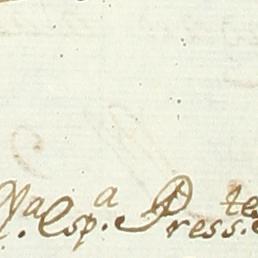 N.ª Esp.ª Press.te